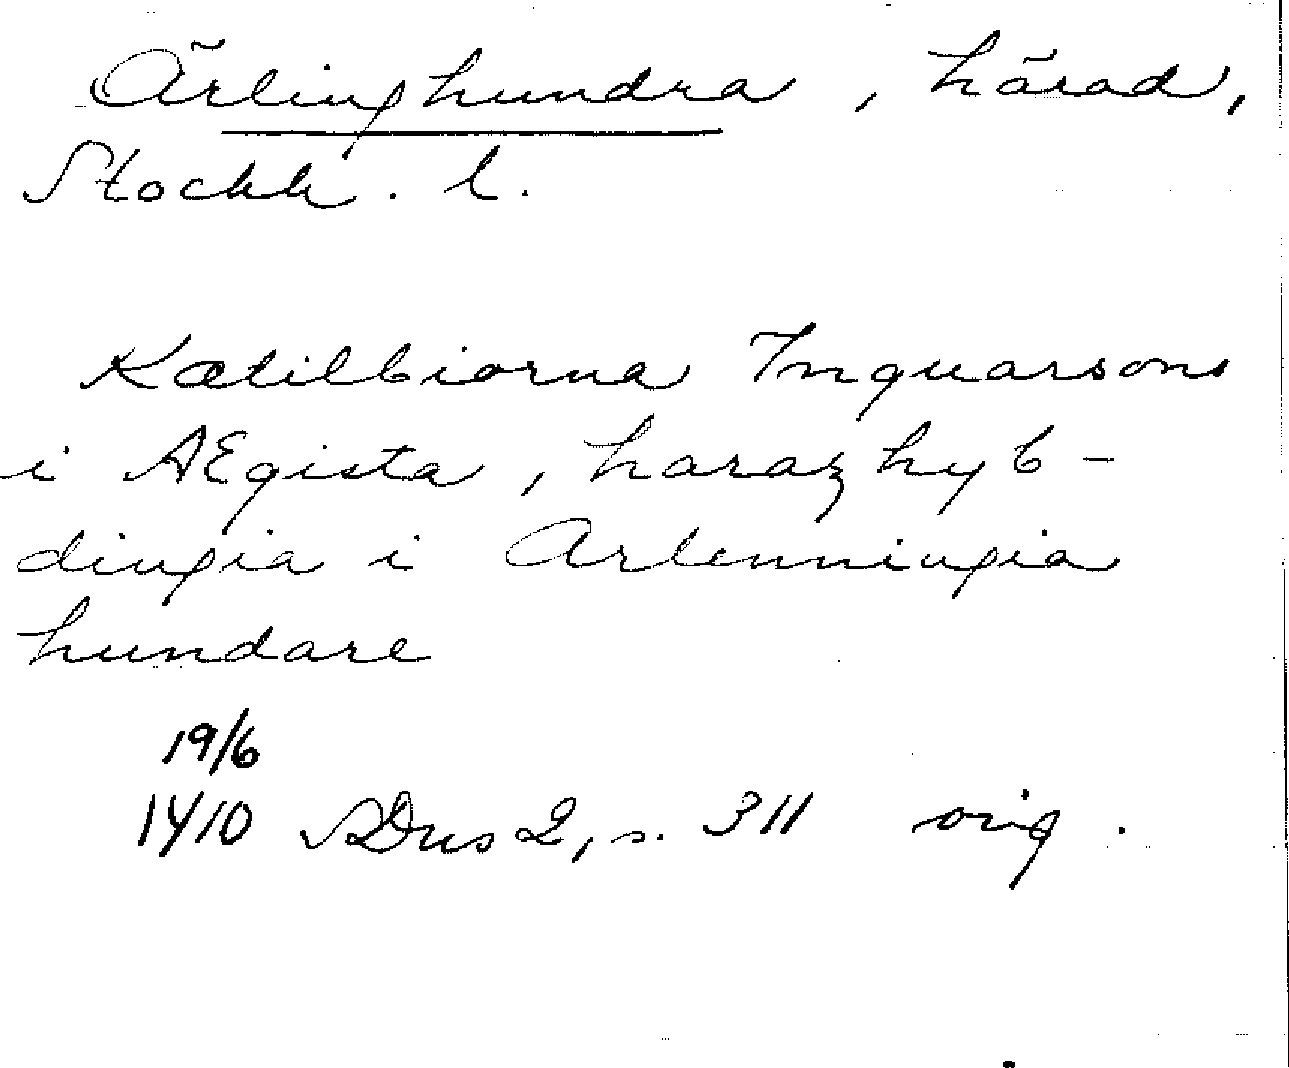 Ärlinghundra, härad,
Stockh. l.
Kætilbiorna Inguarsons
i AEgista, harazhyb-
dingia i Arlenningia
hundare
19/6
1410 SDns 2, s. 311 orig.